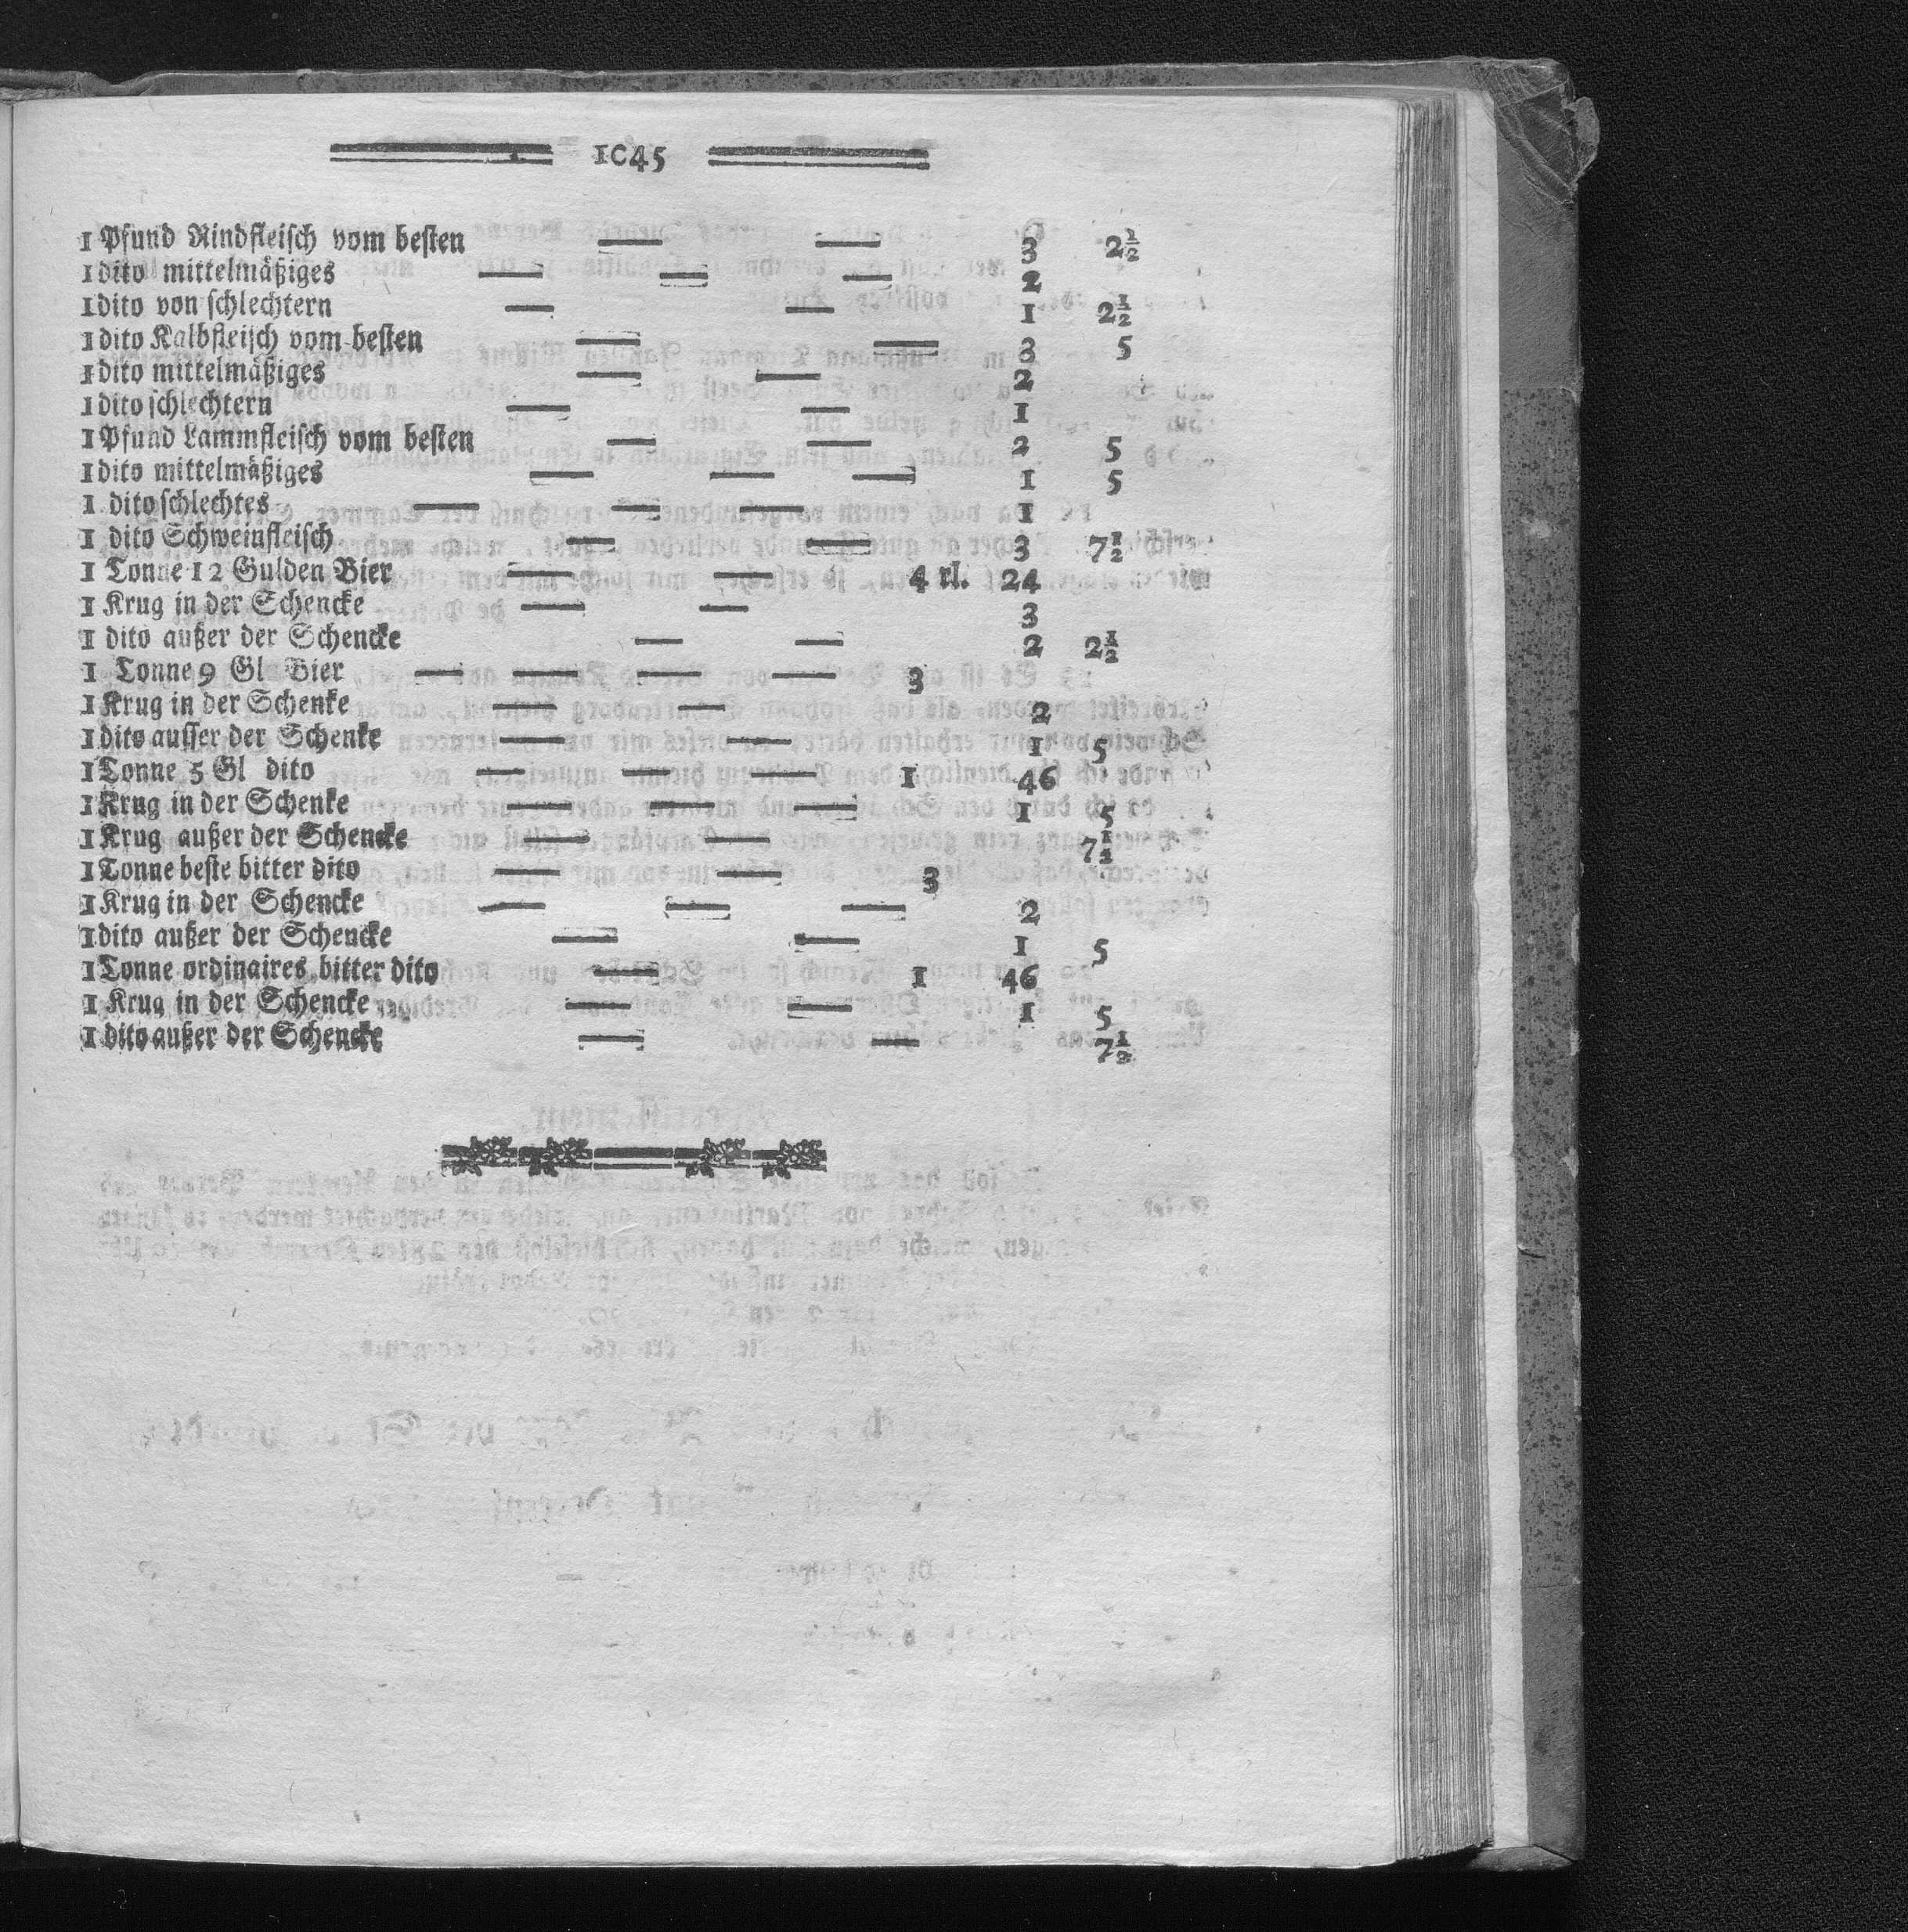 1C45
1 Pfund Rindfleisch vom besten — — 3 2½
1 dito mittelmäßiges — — — 2
1 dito von schlechtern — — 1 2½
1 dito Kalbfleisch vom besten — — 3 5
1 dito mittelmäßiges — — 2
1 dito schlechtern — — 1
1 Pfund Lammfleisch vom besten — — 2 5
1 dito mittelmäßiges — — — 1 5
1 dito schlechtes — — — 1
1 dito Schweinfleisch — — 3 7½
1 Tonne 12 Gulden Bier — — 4 rl. 24
1 Krug in der Schencke — — 3
1 dito außer der Schencke — — 2 2½
1 Tonne 9 Gl Bier — — — 3
1 Krug in der Schenke — — 2
1 dito ausser der Schenke — — 1 5
1 Tonne 5 Gl dito — — — 1 46
1 Krug in der Schenke — — — 1 5
1 Krug außer der Schencke — — 7½
1 Tonne beste bitter dito — — 3
1 Krug in der Schencke — — — 2
1 dito außer der Schencke — — 1 5
1 Tonne ordinaires bitter dito — 1 46
1 Krug in der Schencke — — 1 5
1 dito außer der Schencke — — 7½